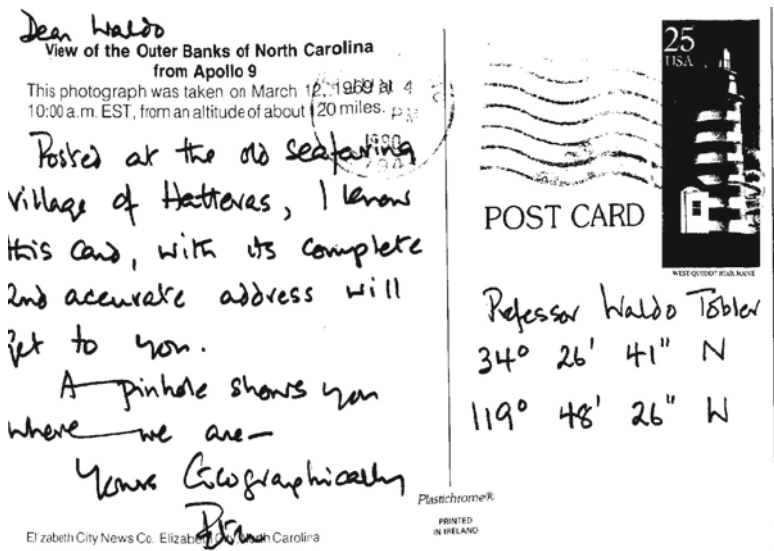 Dear Waldo
View of the Outer Banks of North Carolina
from Apollo 9
This photograph was taken on March 12, 1969 at
10:00 a.m. EST, from an altitude of about 120 miles.
4
PM
1990
Posted at the old seafaring
village of Hatteras, I know
this card, with its complete
and accurate address will
get to you.
A pinhole shows you
where we are—
Yours Geographically
Elizabeth City News Co. Elizabeth City North Carolina
25
USA
POST CARD
WEST QUODDY HEAD, MAINE
Professor Waldo Tobler
34° 26' 41" N
119° 48' 26" W
Plastichrome®
PRINTED
IN IRELAND